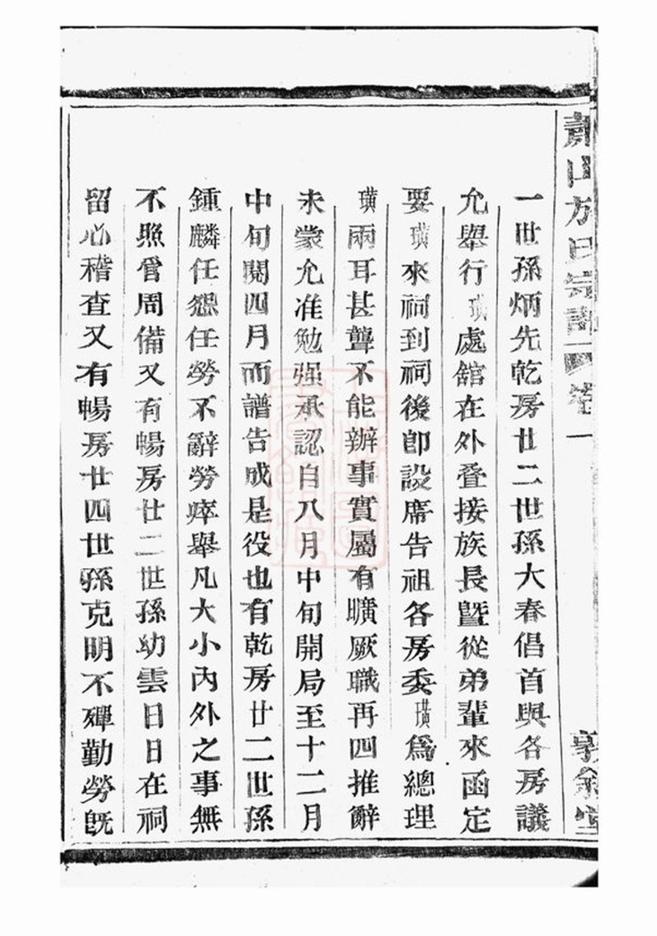 蕭山方氏宗譜 卷一
敦倫堂
一世孫炳先乾房廿二世孫大春倡首與各房議
允舉行璜處舘在外叠接族長暨從弟輩來函定
要璜來祠到祠後卽設席告祖各房委璜爲總理
璜兩耳甚聾不能辦事實屬有曠厥職再四推辭
未蒙允准勉强承認自八月中旬開局至十二月
中旬閱四月而譜告成是役也有乾房廿二世孫
鍾麟任怨任勞不辭勞瘁舉凡大小內外之事無
不照管周備又有暢房廿二世孫幼雲日日在祠
留心稽查又有暢房廿四世孫克明不殫勤勞旣